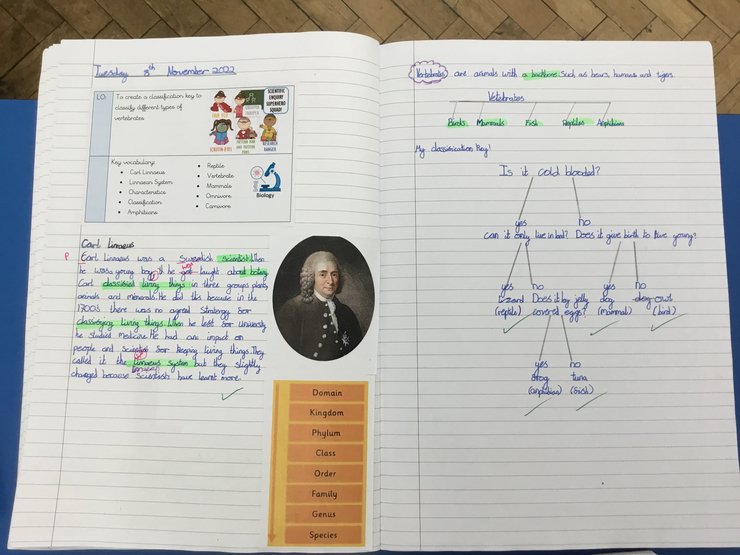 Tuesday 8th November 2022
LO:
To create a classification key to
classify different types of
vertebrates
SCIENTIFIC
ENQUIRY
SUPERHERO
SQUAD!
Key vocabulary:
Carl Linnaeus
Linnaean System
Characteristics
Classification
Amphibians
Reptile
Vertebrate
Mammals
Omnivore
Carnivore
Biology
Carl Linnaeus
P
Carl Linnaeus was a Swedish scientist. When
he was a young boy he got taught about botany.
Carl classified living things in three groups plants,
animals and minerals. He did this because in the
1700s there was no agreed Stratergy for
classifying living things. When he left for University
he studied medicine. He had an impact on
people and scientist for keeping living things. They
called it the linnaeus system but they slightly
changed because Scientists have learnt more.
Domain
Kingdom
Phylum
Class
Order
Family
Genus
Species
Vertebrates are animals with a backbone such as bears, humans and tigers.
Vetebrates
Birds Mammals Fish Reptiles Amphibians
My classification Key!
Is it cold blooded?
yes no
can it only live in land? Does it give birth to live young?
yes no yes no
lizard Does it lay jelly dog owl
(reptile) covered eggs? (mammal) (bird)
yes no
frog tuna
(amphibian) (fish)